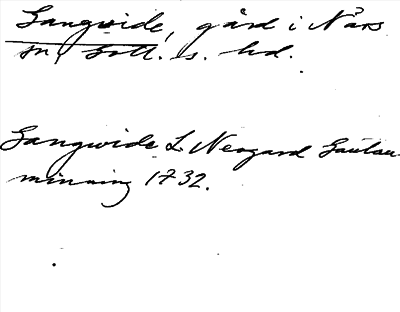 Gangvide, gård i Närs
sn, Gotl. s. hd.
Gangvide L. Nergard Gautau-
minning 1732.